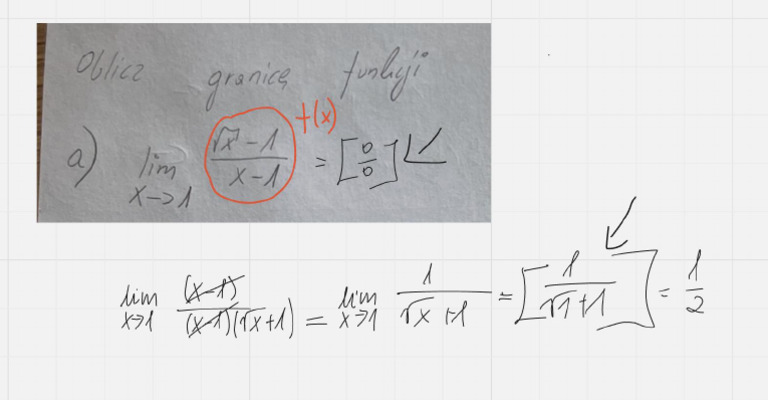 Oblicz granicę funkcji
a) lim x->1 (√x - 1)/(x - 1) = [0/0] f(x)
lim x->1 (x-1)/((x-1)(√x+1)) = lim x->1 1/(√x+1) = [1/(√1+1)] = 1/2